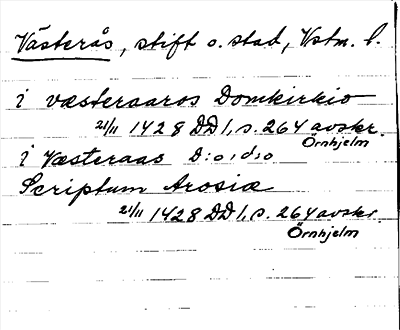 Västerås, stift o. stad, Vstm. l.
i væsteraaros Domkirkio
21/11 1428 DD 1, s. 264 avskr.
Örnhjelm
i Væsteraas D:o, d:o
Scriptum Arosiæ
21/11 1428 DD 1, s. 264 avskr.
Örnhjelm